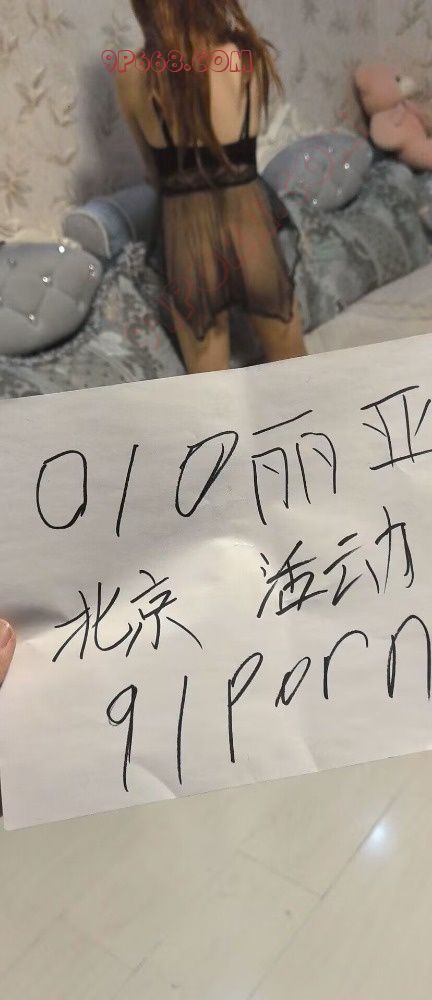 9P668.COM
010丽亚
北京 活动
91Porn